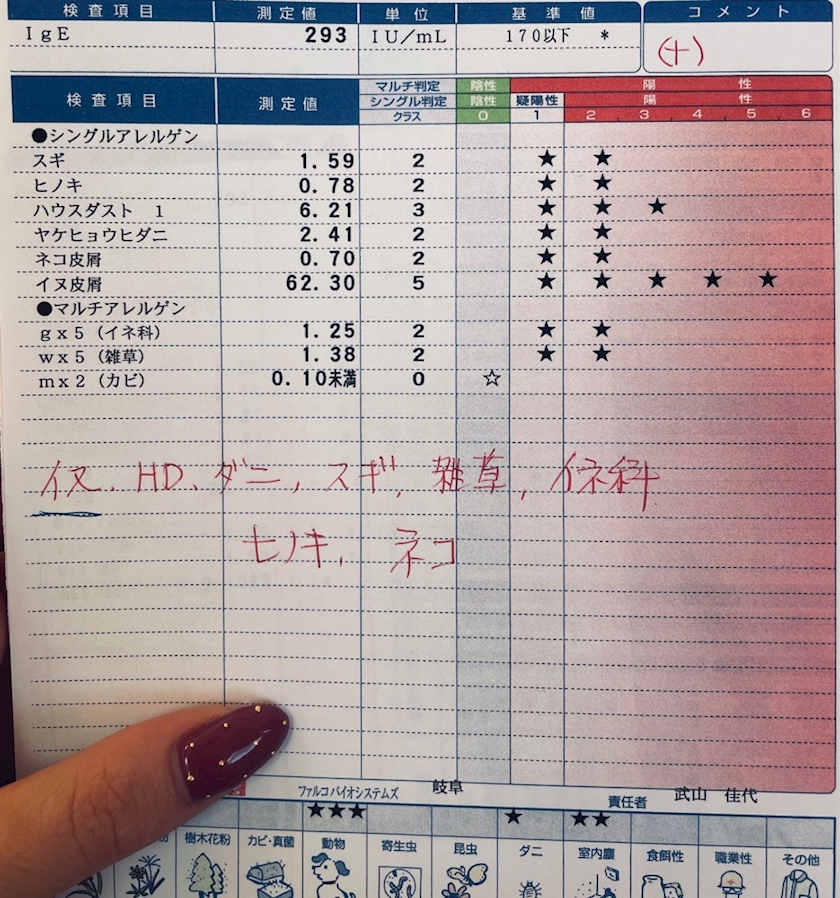 検査項目 測定値 単位 基準値 コメント
IgE 293 IU/mL 170以下 * (+)
検査項目 測定値 マルチ判定 陰性 陽性
シングル判定 陰性 疑陽性 陽性
クラス 0 1 2 3 4 5 6
●シングルアレルゲン
スギ 1.59 2 ★ ★
ヒノキ 0.78 2 ★ ★
ハウスダスト 1 6.21 3 ★ ★ ★
ヤケヒョウヒダニ 2.41 2 ★ ★
ネコ皮屑 0.70 2 ★ ★
イヌ皮屑 62.30 5 ★ ★ ★ ★ ★
●マルチアレルゲン
gx5(イネ科) 1.25 2 ★ ★
wx5(雑草) 1.38 2 ★ ★
mx2(カビ) 0.10未満 0 ☆
イヌ、HD、ダニ、スギ、雑草、イネ科
ヒノキ、ネコ
ファルコバイオシステムズ 岐阜 責任者 武山 佳代
★★★ ★ ★★
樹木花粉 カビ・真菌 動物 寄生虫 昆虫 ダニ 室内塵 食餌性 職業性 その他